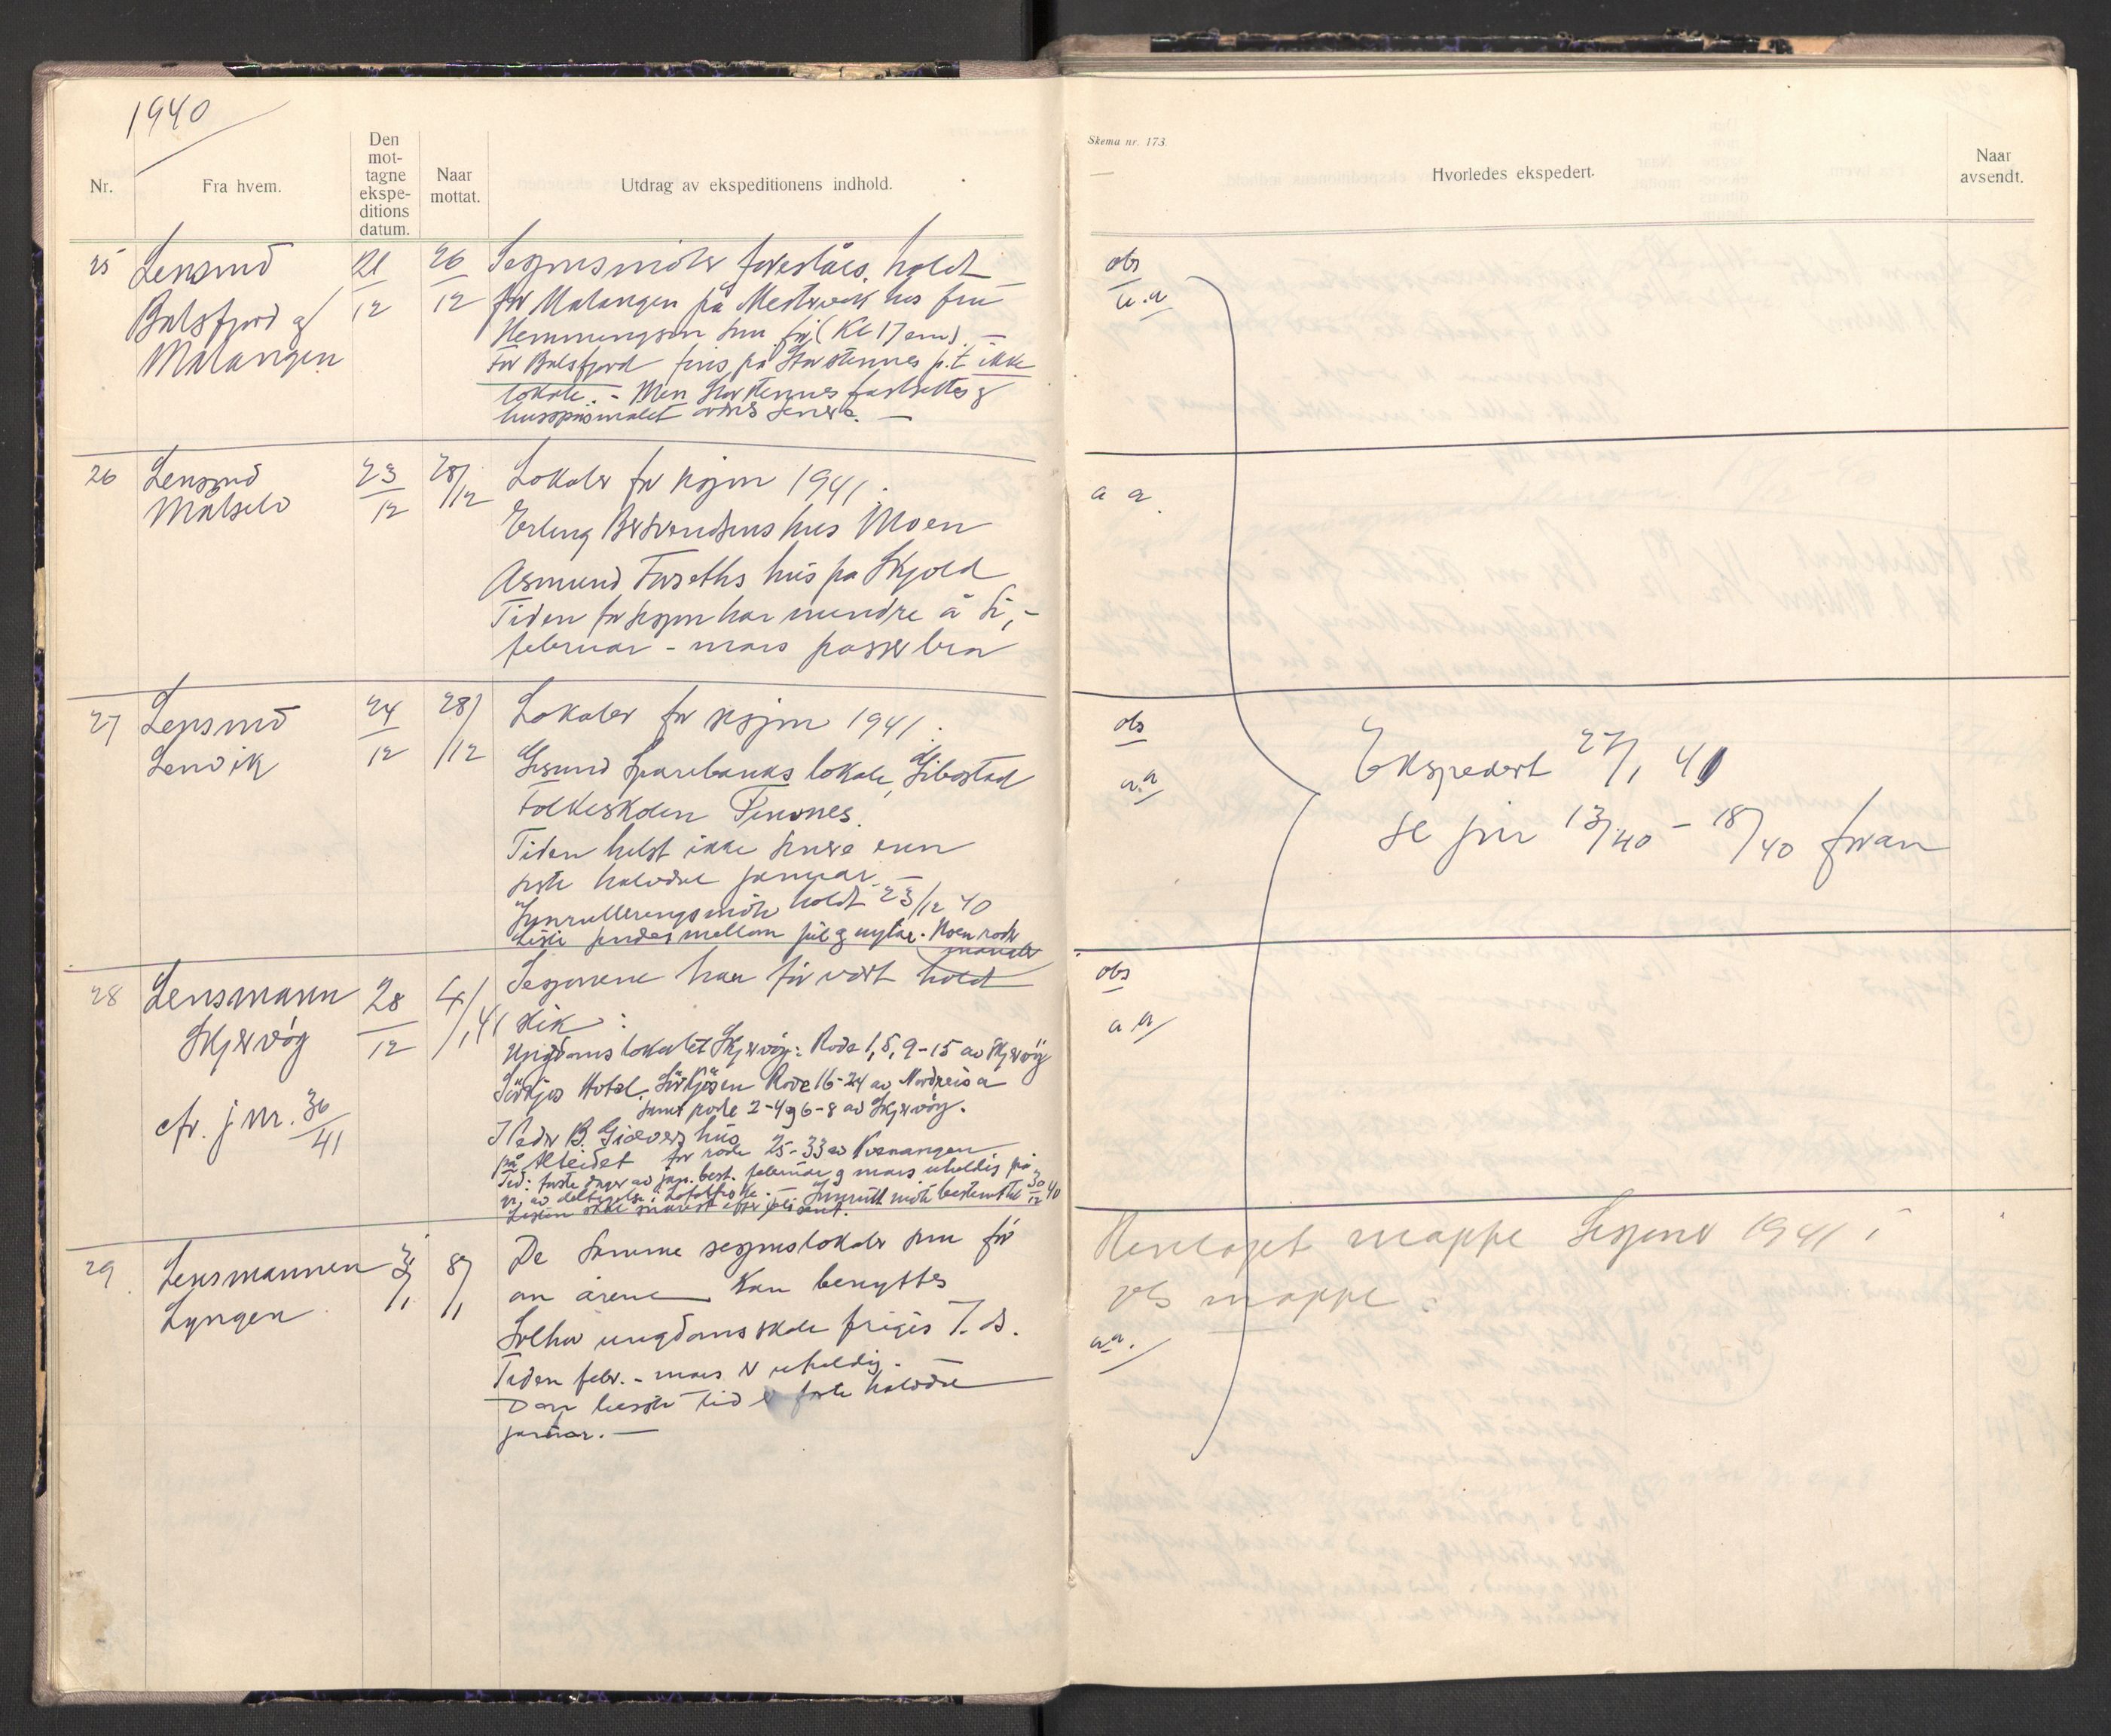 1940
Nr.
Fra hvem.
Den
mot-
tagne
ekspe-
ditions
datum.
Naar
mottat.
Utdrag av ekspeditionens indhold.
25 Lensmd
Balsfjord og
Malangen
21/12
26/12
Sesjonsmøter foreslåes holdt
for Malangen på Mestervik hos fru
Hemmingsen som før (Kl 17 em). —
For Balsfjord fins på Storstennes p.t ikke
lokale. - Men Storstennes fastsettes og
husspørsmålet ordnes senere. —
26 Lensmd
Målselv
23/12
28/12
Lokaler for sesjon 1941.
Erling Bertendsens hus Moen
Asmund Forseths hus på Skjold
Tiden for sesjon har mindre å si, -
februar - mars passer bra
27 Lensmd
Lenvik
24/12
28/12
Lokaler for sesjon 1941.
Gisund Sparebanks lokale, Gibostad
Folkeskolen Finnsnes.
Tiden helst ikke senere enn
første halvdel januar. —
Innrulleringsmøte holdt 23/12 40
Liste sendes mellom jul og nyttår. Noen roder
mangler
28 Lensmann
Skjervøy
cfr. j nr. 36/41
28/12
4/1 41
Sesjonene har før vært holdt
slik:
Ungdomslokalet Skjervøy: Rode 1, 5, 9-15 av Skjervøy
Sörkjos Hotel, Sörkjosen Rode 16-24 av Nordreisa
samt rode 2-4 og 6-8 av Skjervøy.
Peder B. Giævers hus
på Alteidet for rode 25-33 av Kvænangen
Tid: første dager av jan. best. februar og mars uheldig på
gr. av deltagelse i Lofotfiske. — Innrull. møte bestemt til 30/12 40
Listen skal snarest efter bli sent.
29 Lensmannen
Lyngen
3/1
8/1
De samme sesjonslokaler som för
om årene kan benyttes
Solhov ungdomsskole frigis T.d.s.
Tiden febr. - mars er uheldig.
Den beste tid er første halvdel
januar. —
Skema nr. 173.
Hvorledes ekspedert.
Naar
avsendt.
obs
a.a
a a.
obs
a.a
Ekspedert 27/1 41
se jnr 13/40 - 18/40 foran
obs
a a
Henlaget mappe Sesjoner 1941 i
obs mappe.
a a.